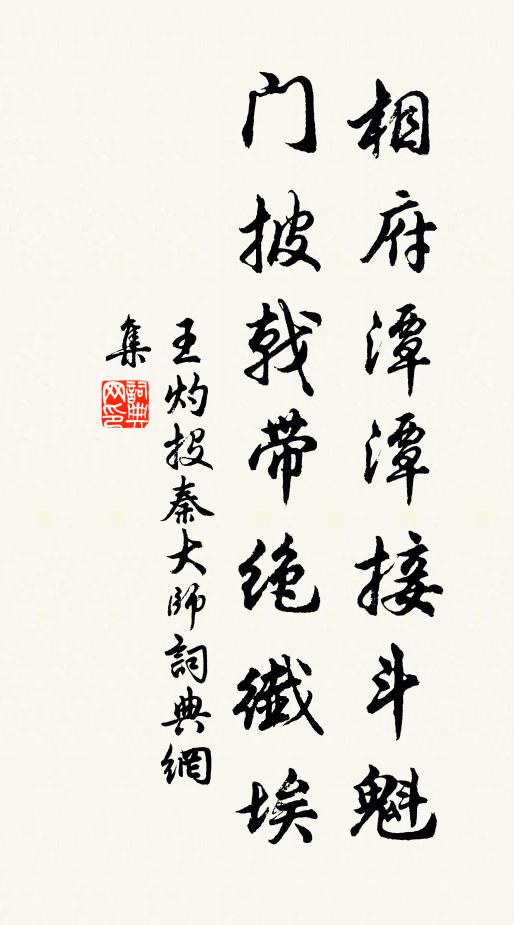 相府潭潭接斗魁
门披戟带绝纖埃
王灼投秦大師詞典網
集
詞典网印